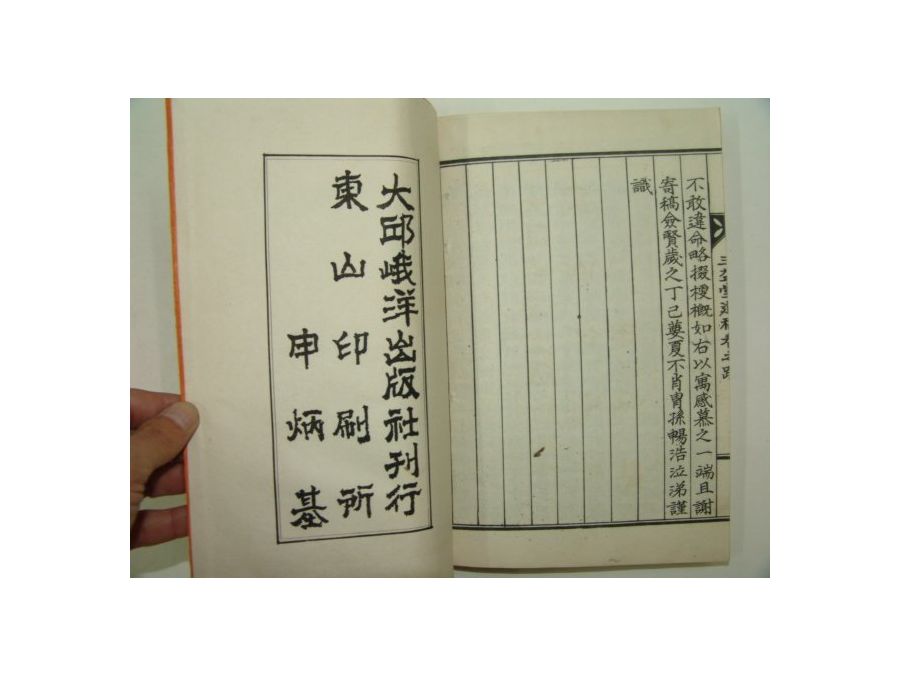 不敢違命略掇梗概如右以寓感慕之一端且謝
寄稿僉賢歲之丁己蓂夏不肖胄孫暢浩泣涕謹
識
大邱峨洋出版社刊行
東山印刷所
申炳基